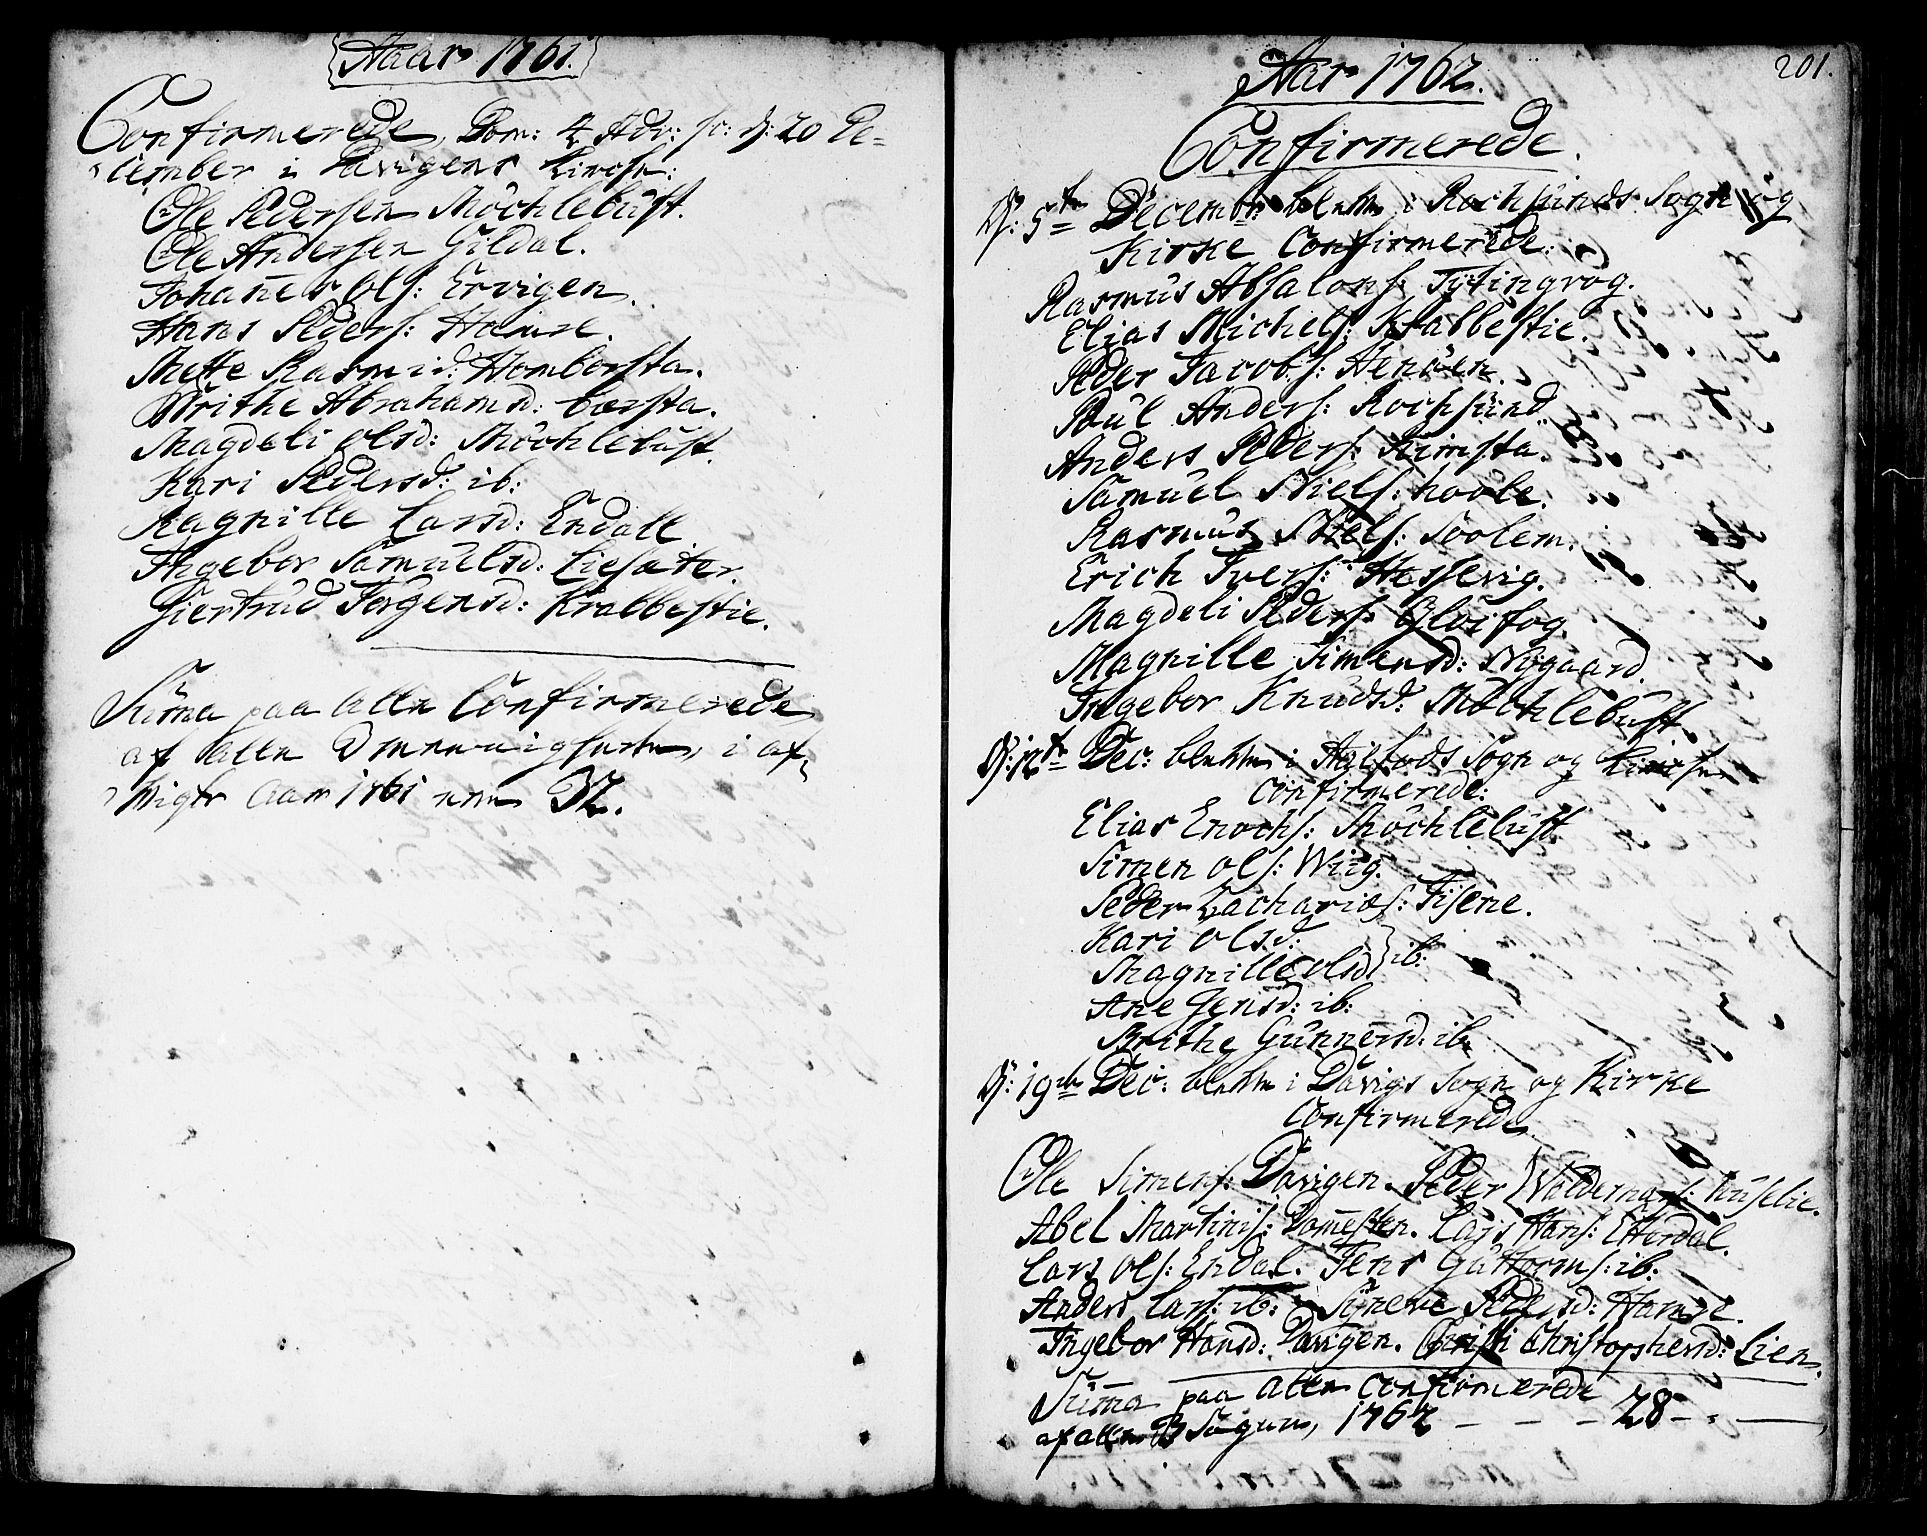 Aaar 1761.
Confirmerede, Dom: 4 Adv: sc: D: 20 De-
cember i Davigens Kirche:
Ole Pedersen Möchlebust.
Ole Andersen Gildal.
Johannes Ols: Ervigen.
Hans Peders: Hamre.
Mette Rasmd: Homborsta.
Brithe Abrahamsd: Børsta.
Magdeli Olsd: Möchlebust.
Kari Pedersd: ib:
Ragnille Larsd: Endall
Ingebor Samuelsd: Liesæter.
Giertrud Jørgensd: Krabbestie.
Summa paa alle Confirmerede
af alle i af-
vigte Aar 1761 32.
201.
Aar 1762.
Confirmerede.
D: 5te Decembr: bleve i Rochsunds Sogn og
Kirke Confirmerede:
Rasmus Absalons: Tytingvog.
Elias Michels: Krabbestie.
Peder Jacobs: Henöen.
Poul Anders: Rochsund.
Anders Peders: Rimsta.
Samuel Niels: Hoole.
Rasmus Niels: Soolem.
Erich Ivers: Hessevig.
Magdeli Peders: Gloifog.
Magnille Simensd: Nygaard.
Ingebor Knudsd: Möchlebust.
D: 12te Dec: bleve i Aalfods Sogn og Kirche
Confirmerede:
Elias Enochs: Möchlebust
Simen Ols: Wiig.
Peder Zacharias: Fisene.
Kari Olsd:
Magnille Olsd: } ib:
Ane Jensd: ib:
Brithe Gunnersd: ib:
D: 19de Dec: bleve i Davigs Sogn og Kirke
Confirmerede
Ole Simens: Davigen. Peder Woldemars: Huselie.
Abel Martinis: Domesten. Lars Hans: Etterdal.
Lars Ols: Endal. Jens Guttorms: ib:
Anders Lars: ib: Synneve Pedersd: Hamre.
Ingebor Hansd: Davigen. Christi Christophersd: Lien.
Summa paa alle Confirmerede
af alle 3 Sogne, 1762 - - - 28 -